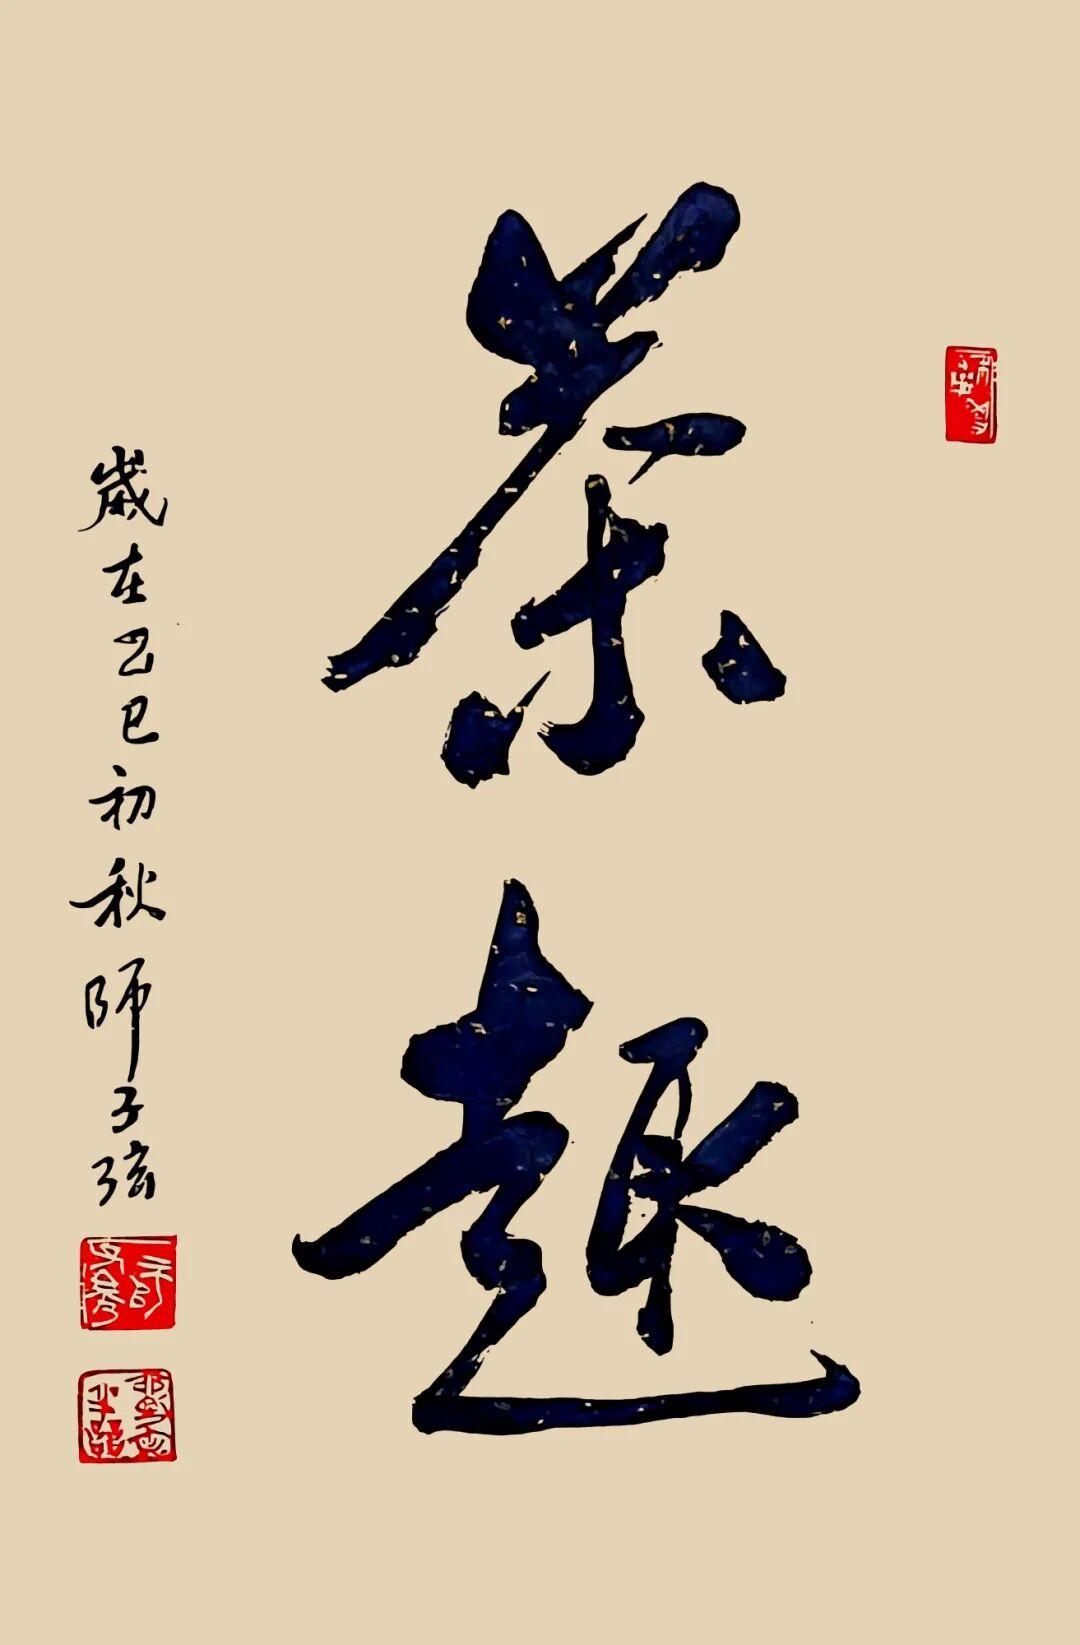 茶趣
歲在乙巳初秋師子弦